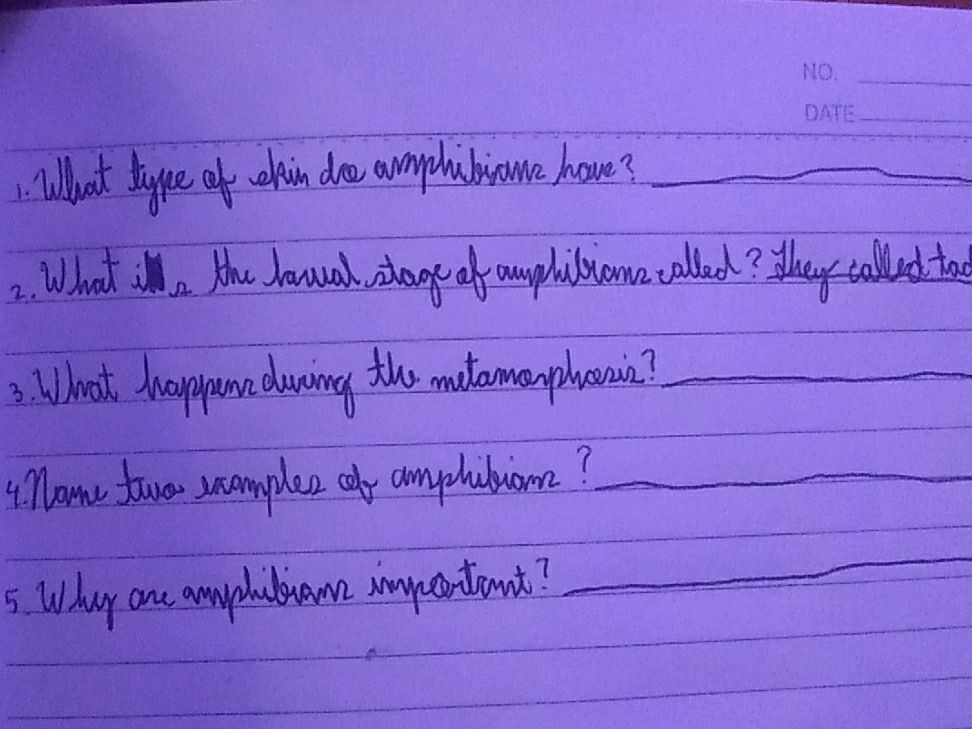 NO.
DATE
1. What type of skin do amphibians have?
2. What is the larval stage of amphibians called? They called tad
3. What happens during the metamorphosis?
4. Name two examples of amphibians?
5. Why are amphibians important?